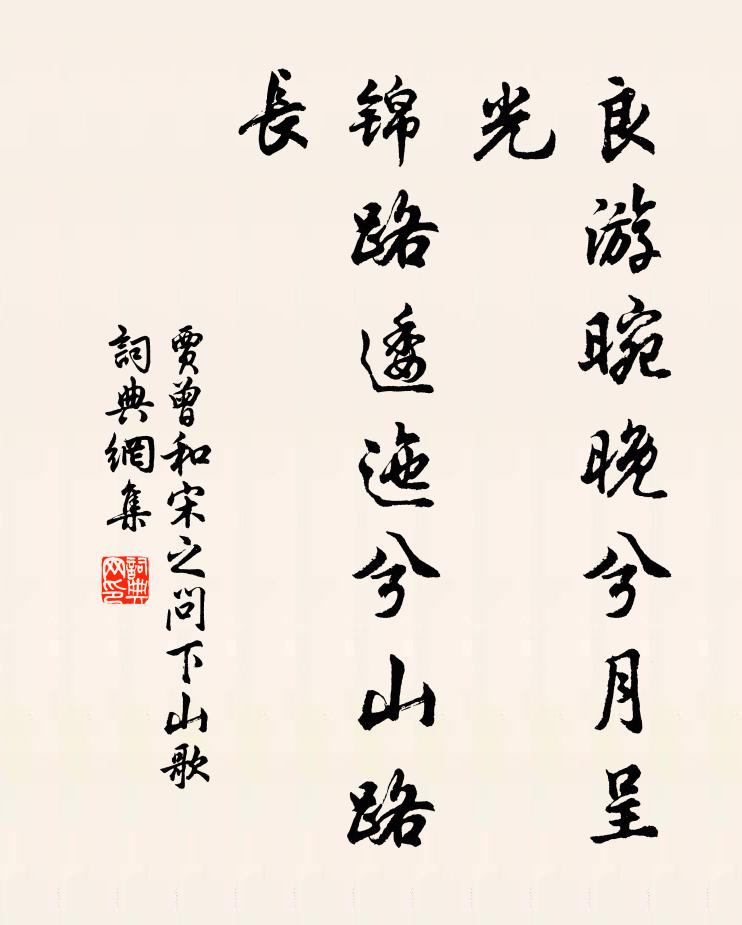 良游晼晚兮月呈
光
锦路逶迤兮山路
長
賈曾和宋之问下山歌
詞典網集
詞典网印